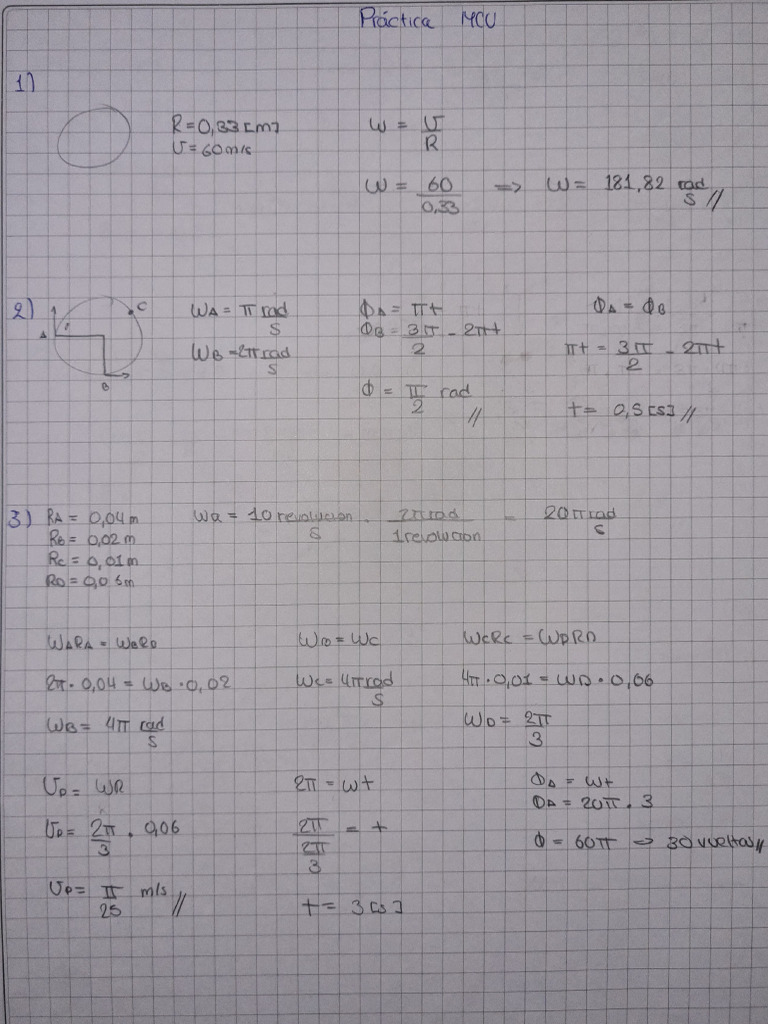 Práctica MCU
1)
R = 0,33 [m]
v = 60 m/s
ω = v/R
ω = 60/0,33 => ω = 181,82 rad/s //
2)
A
B
C
ωA = π rad/s
ωB = 2π rad/s
ΦA = πt
ΦB = 3π/2 - 2πt
Φ = π/2 rad //
ΦA = ΦB
πt = 3π/2 - 2πt
t = 0,5 [s] //
3) RA = 0,04 m
RB = 0,02 m
RC = 0,01 m
RD = 0,06 m
ωa = 10 revolucion/s · 2π rad/1 revolucion = 20π rad/s
ωARA = ωBRB
2π · 0,04 = ωB · 0,02
ωB = 4π rad/s
ωB = ωC
ωC = 4π rad/s
ωCRC = ωDRD
4π · 0,01 = ωD · 0,06
ωD = 2π/3
vD = ωR
vD = 2π/3 · 0,06
vD = π/25 m/s //
2π = ωt
2π/(2π/3) = t
t = 3 [s]
ΦA = ωt
ΦA = 20π . 3
Φ = 60π => 30 vueltas //